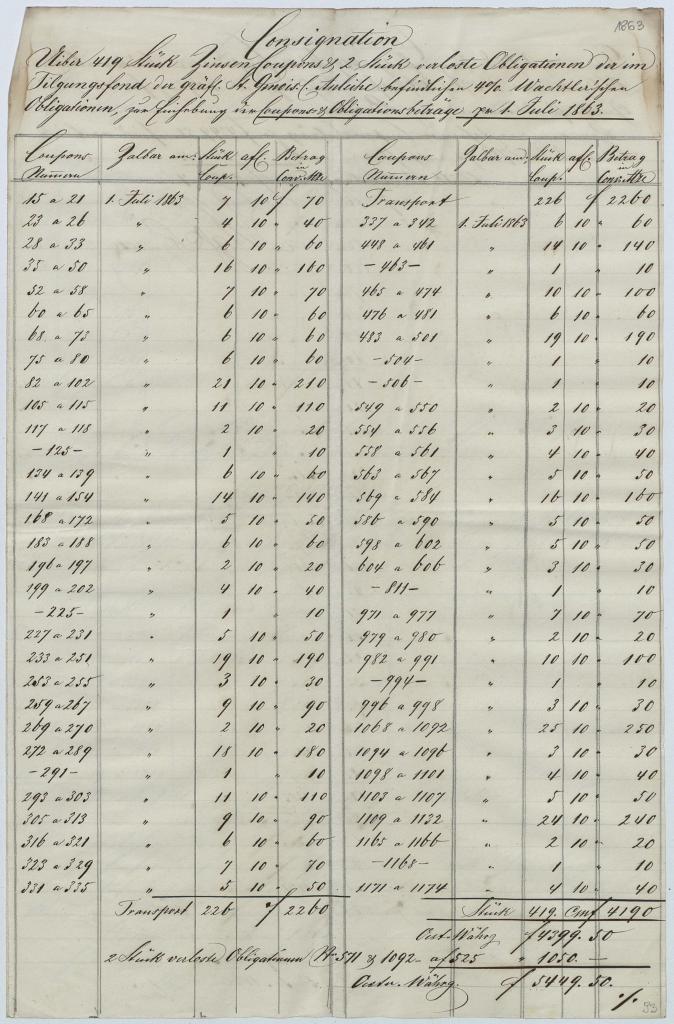 1863
Consignation
Uiber 419 Stück Zinsen Coupons & 2 Stück verloste Obligationen der im
Tilgungsfond der gräfl. St. Anleihe befindlichen 4% Wachtler'schen
Obligationen, zur Einhebung der Coupons- & Obligationsbeträge pr 1. Juli 1863.
Coupons Nummern Zalbar am: Stück Coup. a f. Betrag in Conv. Mze Coupons Nummern Zalbar am: Stück Coup. a f. Betrag in Conv. Mze
15 a 21 1. Juli 1863 7 10 f 70 Transport 226 f 2260
23 a 26 " 4 10 " 40 337 a 342 1. Juli 1863 6 10 " 60
28 a 33 " 6 10 " 60 448 a 461 " 14 10 " 140
35 a 50 " 16 10 " 160 - 463 - " 1 " 10
52 a 58 " 7 10 " 70 465 a 474 " 10 10 " 100
60 a 65 " 6 10 " 60 476 a 481 " 6 10 " 60
68 a 73 " 6 10 " 60 483 a 501 " 19 10 " 190
75 a 80 " 6 10 " 60 - 504 - " 1 " 10
82 a 102 " 21 10 " 210 - 506 - " 1 " 10
105 a 115 " 11 10 " 110 549 a 550 " 2 10 " 20
117 a 118 " 2 10 " 20 554 a 556 " 3 10 " 30
- 125 - " 1 " 10 558 a 561 " 4 10 " 40
134 a 139 " 6 10 " 60 563 a 567 " 5 10 " 50
141 a 154 " 14 10 " 140 569 a 584 " 16 10 " 160
168 a 172 " 5 10 " 50 586 a 590 " 5 10 " 50
183 a 188 " 6 10 " 60 598 a 602 " 5 10 " 50
196 a 197 " 2 10 " 20 604 a 606 " 3 10 " 30
199 a 202 " 4 10 " 40 - 811 - " 1 " 10
- 225 - " 1 " 10 971 a 977 " 7 10 " 70
227 a 231 " 5 10 " 50 979 a 980 " 2 10 " 20
233 a 251 " 19 10 " 190 982 a 991 " 10 10 " 100
253 a 255 " 3 10 " 30 - 994 - " 1 " 10
259 a 267 " 9 10 " 90 996 a 998 " 3 10 " 30
269 a 270 " 2 10 " 20 1068 a 1092 " 25 10 " 250
272 a 289 " 18 10 " 180 1094 a 1096 " 3 10 " 30
- 291 - " 1 " 10 1098 a 1101 " 4 10 " 40
293 a 303 " 11 10 " 110 1103 a 1107 " 5 10 " 50
305 a 313 " 9 10 " 90 1109 a 1132 " 24 10 " 240
316 a 321 " 6 10 " 60 1165 a 1166 " 2 10 " 20
323 a 329 " 7 10 " 70 - 1168 - " 1 " 10
331 a 335 " 5 10 " 50 1171 a 1174 " 4 10 " 40
Transport 226 f 2260 Stück 419. Cmf 4190
Oest. Währg f 4399. 50
2 Stück verloste Obligationen No 571 & 1092 a f 525 " 1050. —
Oestr. Währg. f 5449. 50.
53